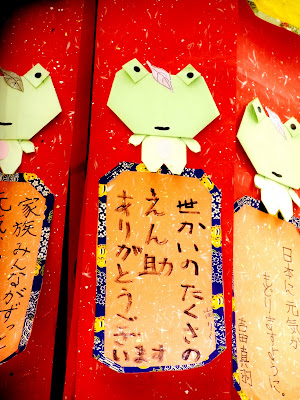 日本に元気が
もどりますように。
世かいのたくさの
えん助
ありがとうござい
ます
家族みんながずっと
元気